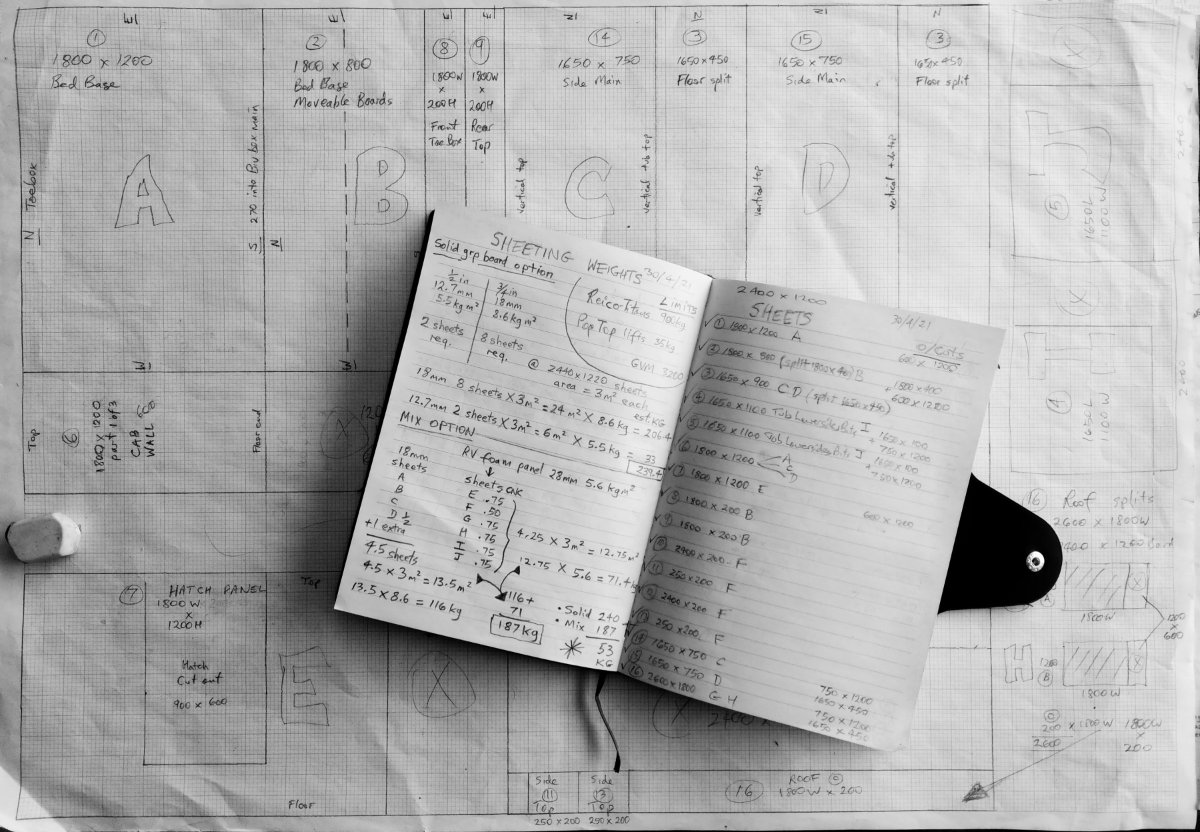 ①
1800 x 1200
Bed Base
②
1800 x 800
Bed Base
Moveable Boards
⑧
1800W
x
200H
Front
Toe Box
⑨
1800W
x
200H
Rear
Top
⑭
1650 x 750
Side Main
N
③
1650 x 450
Floor split
⑮
1650 x 750
Side Main
N
③
1650 x 450
Floor split
N Toebox
A
S 270 into Box main
N
B
vertical top
C
vertical top
D
⑤
1650L
1100W
J
2400
I
④
1650L
1100W
Top
⑥
1800 x 1200
part 1 of 3
CAB
WALL
Floor end
⑦ HATCH PANEL
1800W
x
1200H
Hatch
Cut out
900 x 600
Top
E
X
Floor
SHEETING WEIGHTS 30/4/21
Solid grp board option
1/2 in
12.7mm
5.5kg m²
2 sheets
req.
3/4 in
18mm
8.6kg m²
8 sheets
req.
Limits
900kg
Pop Top lifts 35kg
GVM 3200
@ 2440 x 1220 sheets
area = 3m² each
est KG
18mm 8 sheets X 3m² = 24m² X 8.6kg = 206.4
12.7mm 2 sheets X 3m² = 6m² X 5.5kg = 33
239.4
MIX OPTION
18mm
sheets
A
B
C
D ½
+1 extra
4.5 sheets
4.5 x 3m² = 13.5m²
13.5 x 8.6 = 116kg
RV foam panel 28mm 5.6kg m²
sheets
E .75
F .50
G .75
H .75
I .75
J .75
4.25 x 3m² = 12.75m²
12.75 x 5.6 = 71.4kg
116+
71
187kg
• Solid 240
• Mix 187
53
KG
2400 x 1200
SHEETS 30/4/21
✓ ① 1800 x 1200 A
O/Cuts
600 x 1200
✓ ② 1800 x 800 (split 1800 x 40) B
+ 1800 x 400
600 x 1200
✓ ③ 1650 x 900 C D (split 1650 x 450)
✓ ④ 1650 x 1100 Tub Lowerside pts I
1650 x 100
+ 750 x 1200
✓ ⑤ 1650 x 1100 Tub Lowerside pts J
1650 x 100
+ 750 x 1200
✓ ⑥ 1800 x 1200
A
C
D
✓ ⑦ 1800 x 1200 E
600 x 1200
✓ ⑧ 1800 x 200 B
✓ ⑨ 1800 x 200 B
✓ ⑩ 2400 x 200 F
✓ ⑪ 250 x 200 F
✓ ⑫ 2400 x 200 F
✓ ⑬ 250 x 200 F
✓ ⑭ 1650 x 750 C
✓ ⑮ 1650 x 750 D
✓ ⑯ 2600 x 1800 G H
750 x 1200
1650 x 450
750 x 1200
1650 x 450
⑯ Roof splits
2600 x 1800W
1800W
H
1200
Ⓑ
1800W
1200
x
600
Ⓒ
200 x 1800W
2600
1800W
x
200
Side
⑪
Top
250 x 200
Side
⑬
Top
250 x 200
⑯
ROOF Ⓒ
1800W x 200